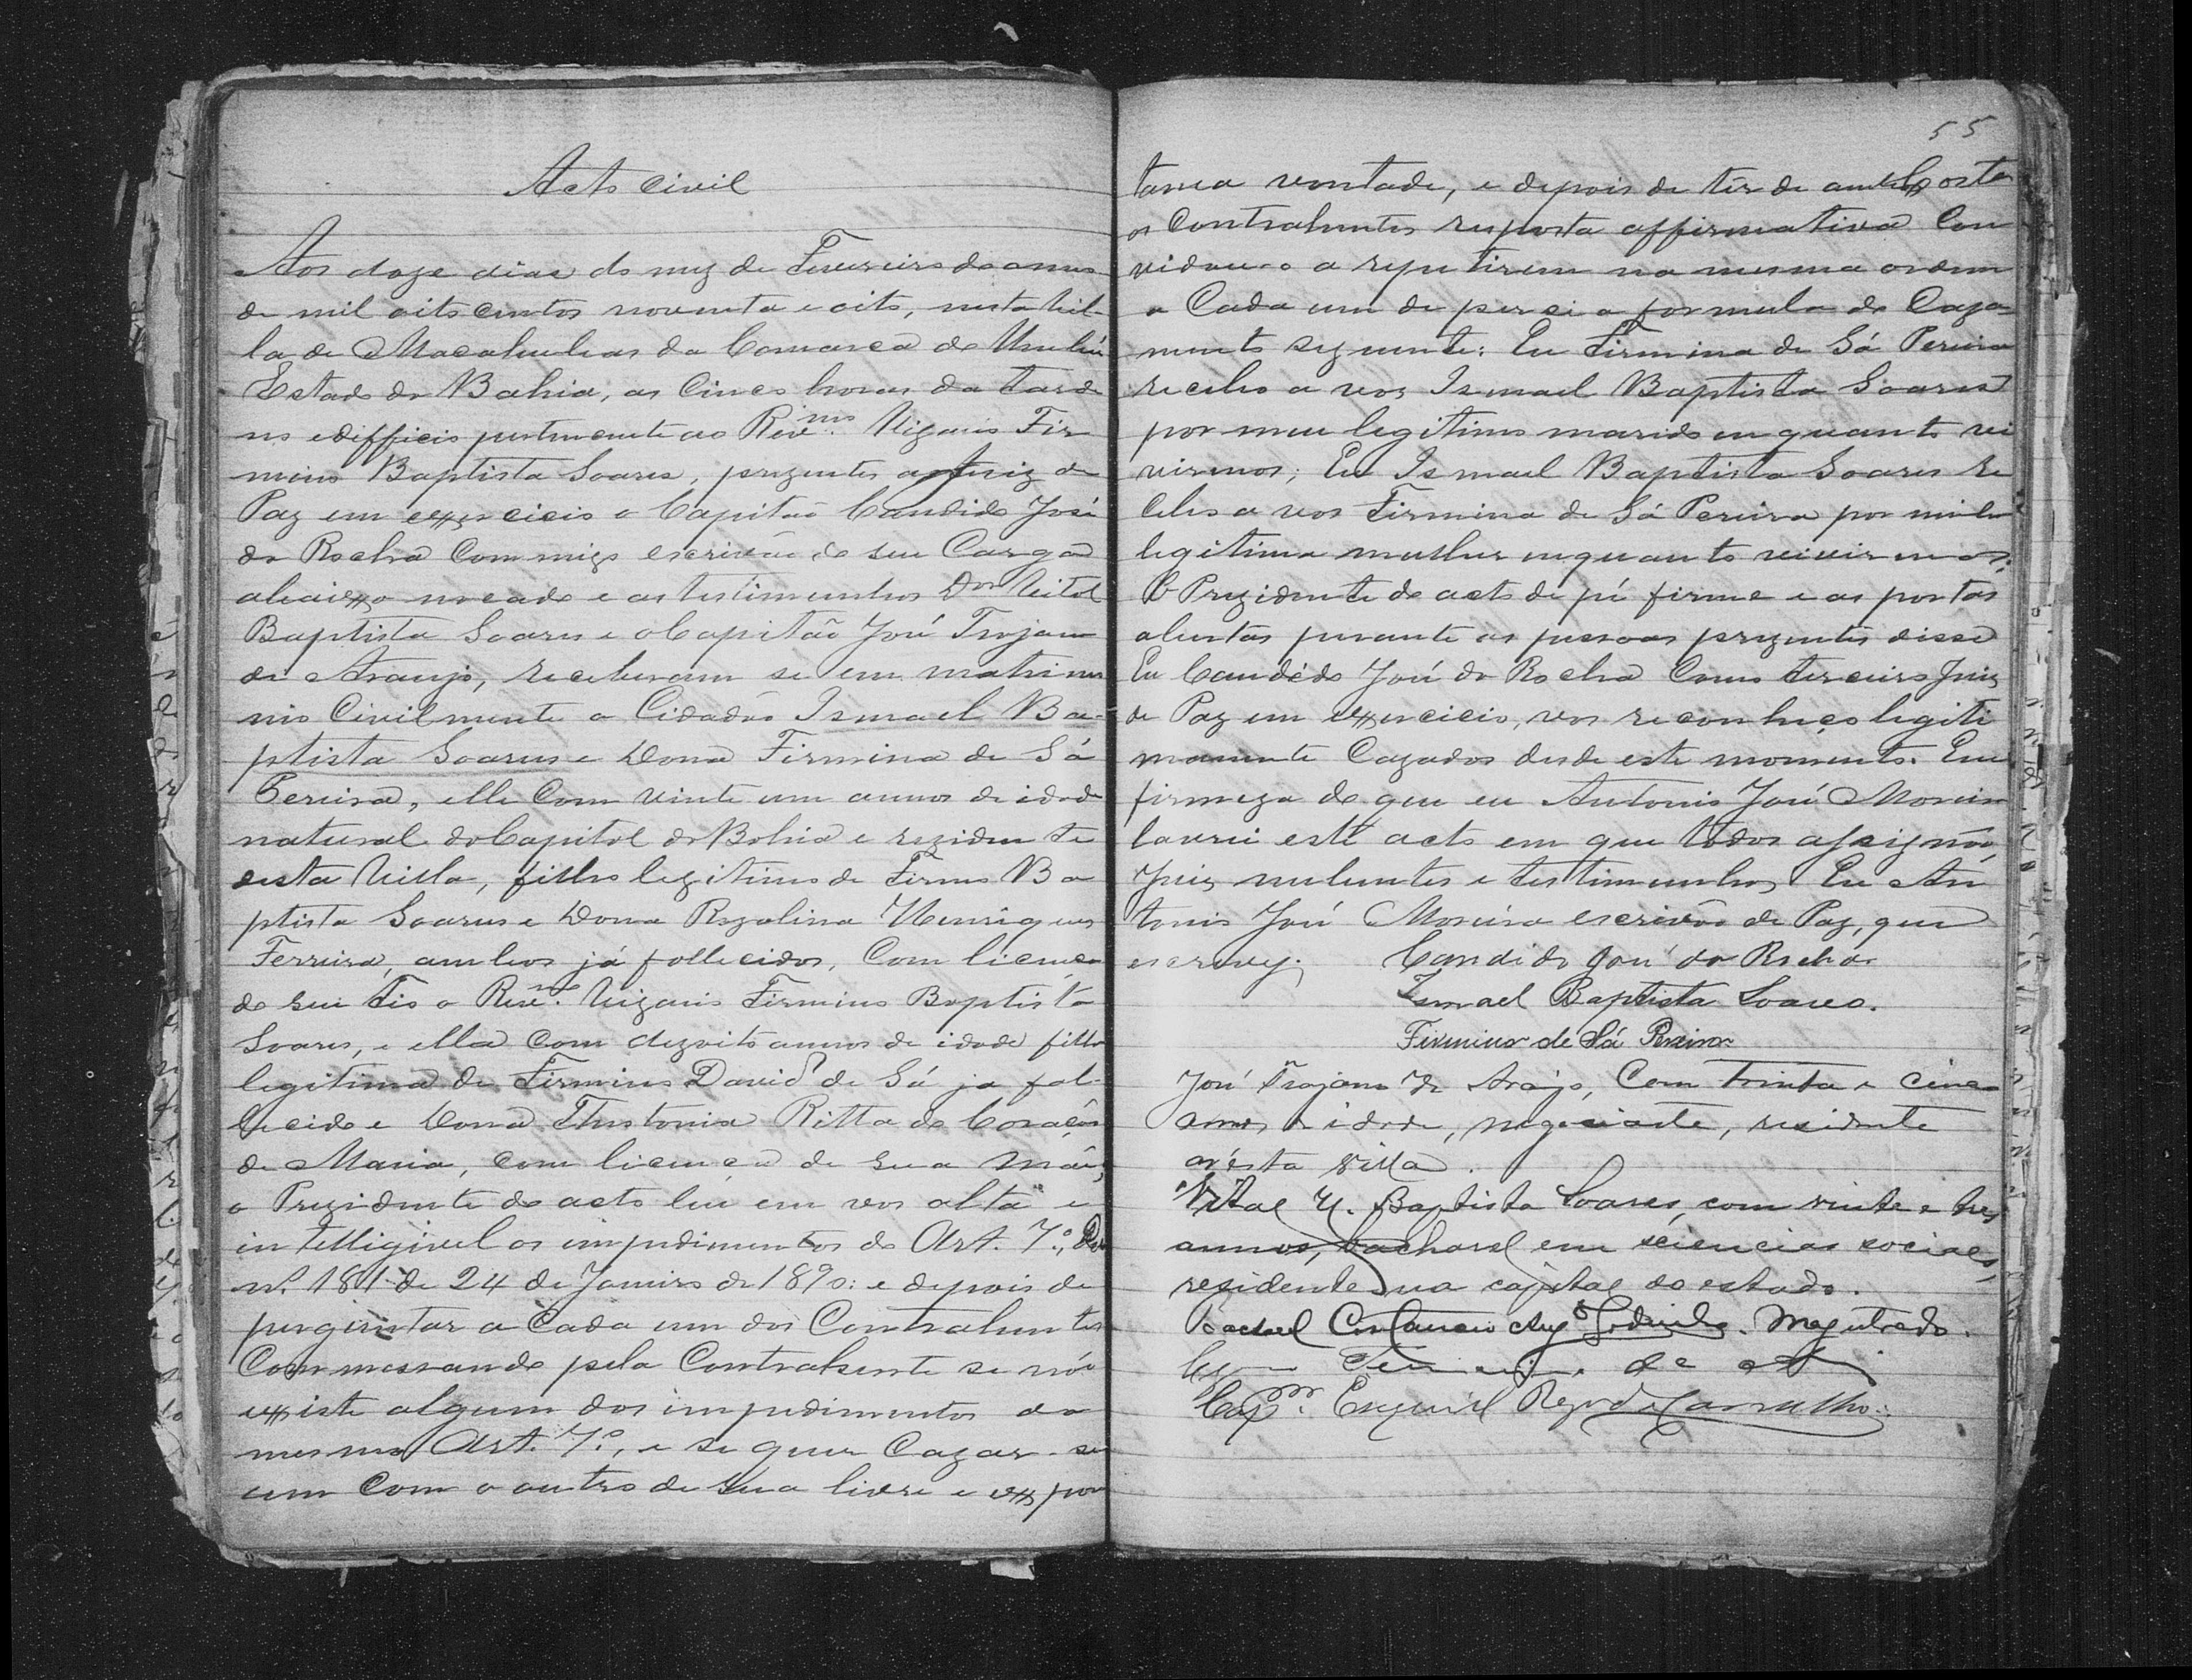 Acto Civil
Aos doze dias do mez de Fevereiro do anno
de mil oito centos noventa e oito, nesta Vil-
la de Macahubas da Comarca de Urubú
Estado da Bahia, as Cinco horas da tarde
no edifficio pertencente ao Revmo. Vigario Fir
mino Baptista Soares, prezentes o Juiz de
Paz em exercicio o Capitão Candido José
da Rocha Commigo escrivão de seu Cargo
abaixo nomeado e as testimunhas Dor Vital
Baptista Soares e o Capitão José Trajano
de Araujo, receberam se em matrimo
nio Civilmente o Cidadão Ismael Ba-
ptista Soares e Dona Firmina de Sá
Pereira, elle Com vinte um annos de idade
natural da Capital da Bahia e rezidente
desta Villa, filho legitimo de Firmo Ba
ptista Soares e Dona Rozalina Henriques
Ferreira, ambos já fallecidos, Com licença
de seu tio o Revmo. Vigario Firmino Baptista
Soares, e ella Com dezoito annos de idade filha
legitima de Firmino David de Sá já fal-
lecido e Dona Rita do Coração
de Maria, com licença de sua mãe,
o Prezidente do acto leu em vos alta e
intelligivel os impedimentos do Art. 7º., Dec
nº. 181 de 24 de Janeiro de 1890: e depois de
pergintar a Cada um dos Contrahentes
Commessando pela Contrahente se não
existe algum dos impedimentos do
mesmo Art. 7º., e se quer Cazar-se
um Com o outro de sua livre e expon
55
tanea vontade, e depois de ter de ambos
os Contrahentes resposta affirmativa Con
vidou-o a repetirem na mesma ordem
a Cada um de per si a formula do Caza-
mento seguente: Eu Firmina de Sá Pereira
recebo a vos Ismael Baptista Soares
por meu legitimo marido enquanto vi
viremos; Eu Ismael Baptista Soares re
cebo a vos Firmina de Sá Pereira por minha
legitima mulher enquanto viviremos;
O Prezidente do acto de pé firme e as portas
abertas perante as pessoas prezentes disse
Eu Candido José da Rocha Como terceiro Juiz
de Paz em exercicio, vos reconheço legiti
mamente Cazados desde este momento. Em
firmeza do que eu Antonio José Moreira
lavrei este acto em que todos assignão,
Juiz nubentes e testimunhas Eu An
tonio José Moreira escrivão de Paz, que
escrevy.  Candido José da Rocha
Ismael Baptista Soares.
Firmina de Sá Pereira
José Trajano de Araujo, Com trinta e cinco
annos de idade, negociante, residente
n'esta villa.
Vital H. Baptista Soares, com vinte e tres
annos, bacharel em sciencias sociaes,
residente na capital do estado.
Bacharel Augo Godinho. Magistrado.
Capm. Rego de Carvalho.